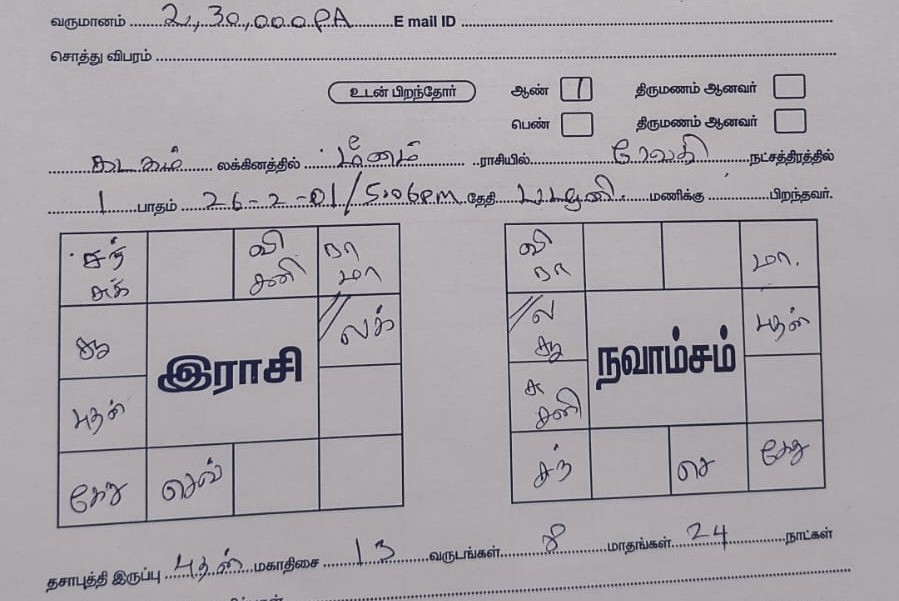 வருமானம் 2,30,000PA E mail ID
சொத்து விபரம்
உடன் பிறந்தோர் ஆண் 1 திருமணம் ஆனவர்
பெண் திருமணம் ஆனவர்
கடகம் லக்கினத்தில் மீனம் ராசியில் ரேவதி நட்சத்திரத்தில்
1 பாதம் 26-2-01/5:06PM தேதி பழனி மணிக்கு பிறந்தவர்.
சந்
சுக்
வி
சனி
ரா
மா
சூ
லக்
புதன்
கேது
செவ்
இராசி
வி
ரா
மா.
ல
சூ
புதன்
சு
சனி
சந்
செ
கேது
நவாம்சம்
தசாபுத்தி இருப்பு புதன் மகாதிசை 13 வருடங்கள் 8 மாதங்கள் 24 நாட்கள்